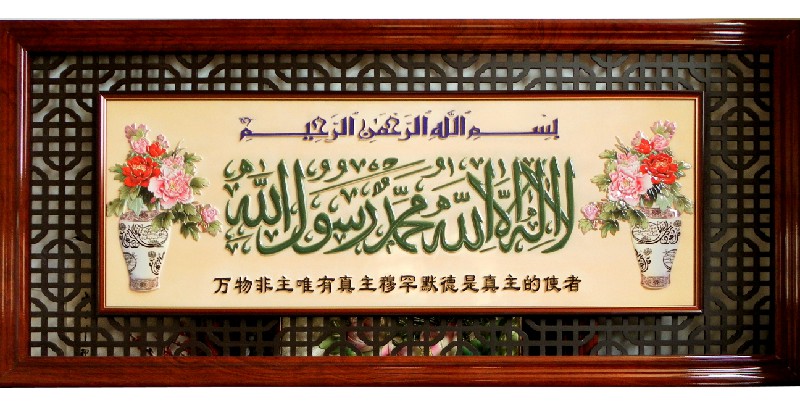 بسم الله الرحمن الرحيم
لا إله إلا الله محمد رسول الله
万物非主唯有真主穆罕默德是真主的使者